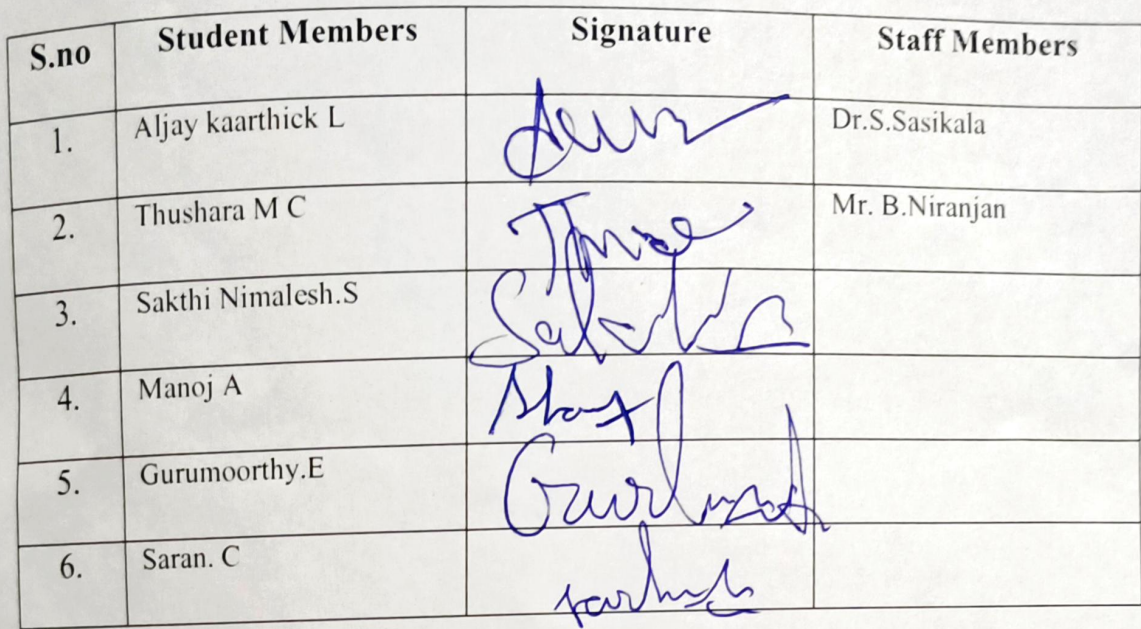 S.no Student Members Signature Staff Members
1. Aljay kaarthick L Dr.S.Sasikala
2. Thushara M C Mr. B.Niranjan
3. Sakthi Nimalesh.S
4. Manoj A
5. Gurumoorthy.E
6. Saran. C